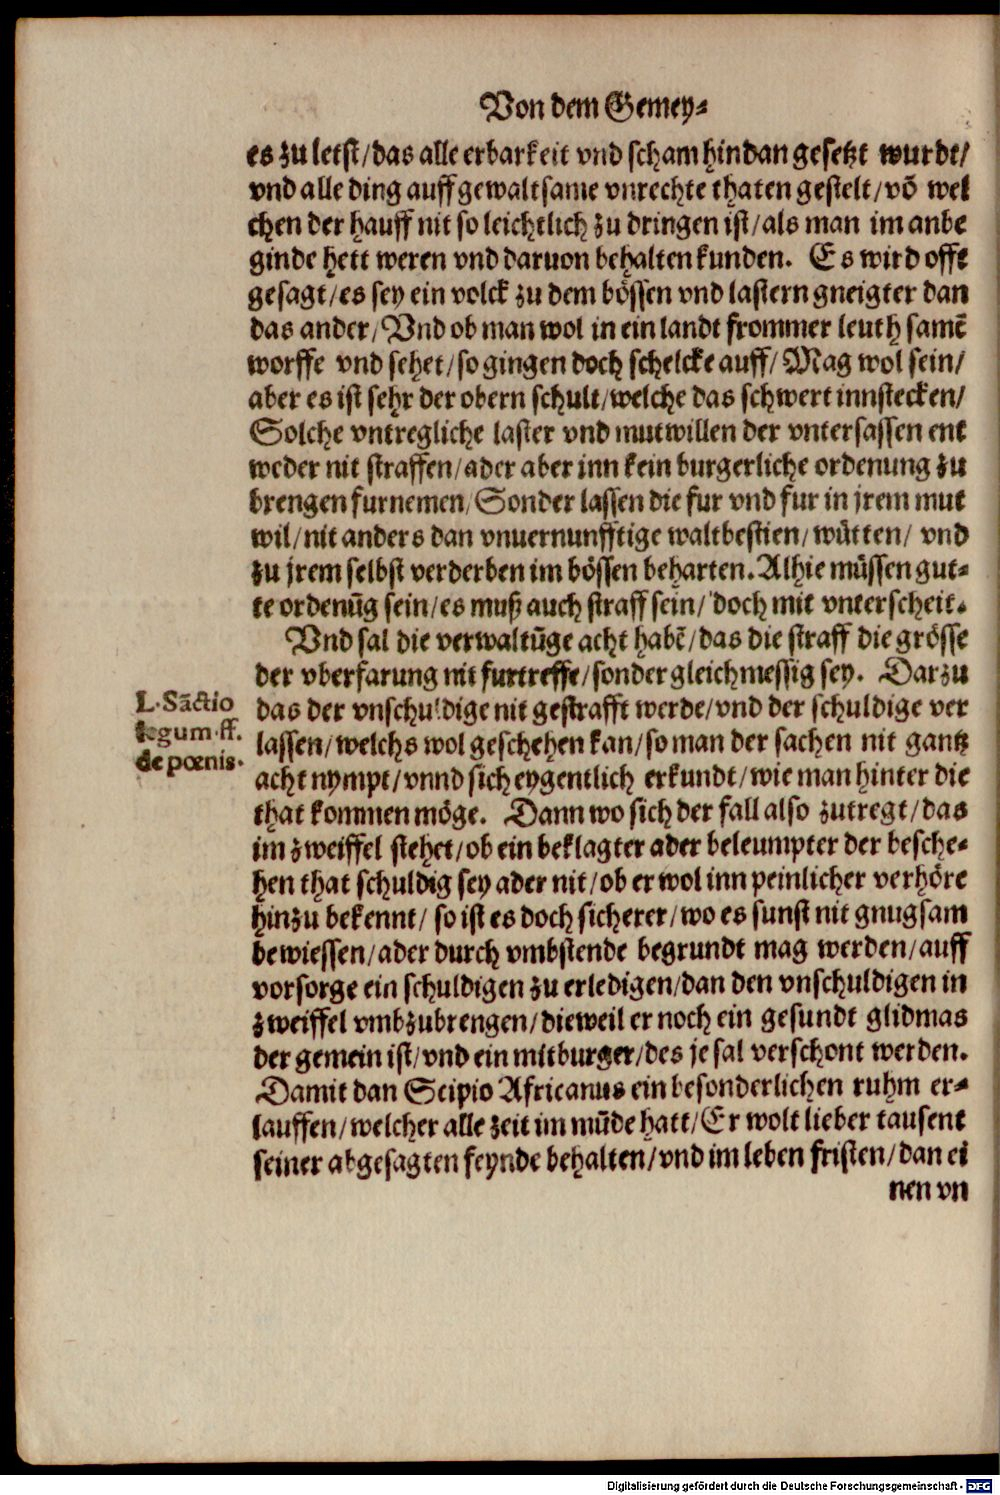 Von dem Gemey-
es zu letst/das alle erbarkeit vnd scham hindan gesetzt wurdt/
vnd alle ding auff gewaltsame vnrechte thaten gestelt/vō wel
chen der hauff nit so leichtlich zu dringen ist/als man im anbe
ginde hett weren vnd daruon behalten kunden. Es wird offt
gesagt/es sey ein volck zu dem bössen vnd lastern gneigter dan
das ander/Vnd ob man wol in ein landt frommer leuth samē
worffe vnd sehet/so gingen doch schelcke auff/Mag wol sein/
aber es ist sehr der obern schult/welche das schwert innstecken/
Solche vntregliche laster vnd mutwillen der vntersassen ent
weder nit straffen/ader aber inn kein burgerliche ordenung zu
brengen furnemen/Sonder lassen die fur vnd fur in jrem mut
wil/nit anders dan vnuernunfftige waltbestien/wütten/ vnd
zu jrem selbst verderben im bössen beharten. Alhie müssen gut-
te ordenūg sein/es muß auch straff sein/ doch mit vnterscheit.
Vnd sal die verwaltūge acht habē/das die straff die grösse
der vberfarung nit furtreffe/sonder gleichmessig sey. Darzu
das der vnschuldige nit gestrafft werde/vnd der schuldige ver
lassen/welchs wol geschehen kan/so man der sachen nit gantz
acht nympt/vnnd sich eygentlich erkundt/wie man hinter die
that kommen möge. Dann wo sich der fall also zutregt/das
im zweiffel stehet/ob ein beklagter ader beleumpter der besche-
hen that schuldig sey ader nit/ob er wol inn peinlicher verhöre
hinzu bekennt/ so ist es doch sicherer/wo es sunst nit gnugsam
bewiessen/ader durch vmbstende begrundt mag werden/auff
vorsorge ein schuldigen zu erledigen/dan den vnschuldigen in
zweiffel vmbzubrengen/dieweil er noch ein gesundt glidmas
der gemein ist/vnd ein mitburger/des je sal verschont werden.
Damit dan Scipio Africanus ein besonderlichen ruhm er-
lauffen/welcher alle zeit im mūde hatt/Er wolt lieber tausent
seiner abgesagten feynde behalten/vnd im leben fristen/dan ei
nen vn
L. Sāctio
legum ff.
de pœnis.
Digitalisierung gefördert durch die Deutsche Forschungsgemeinschaft - DFG